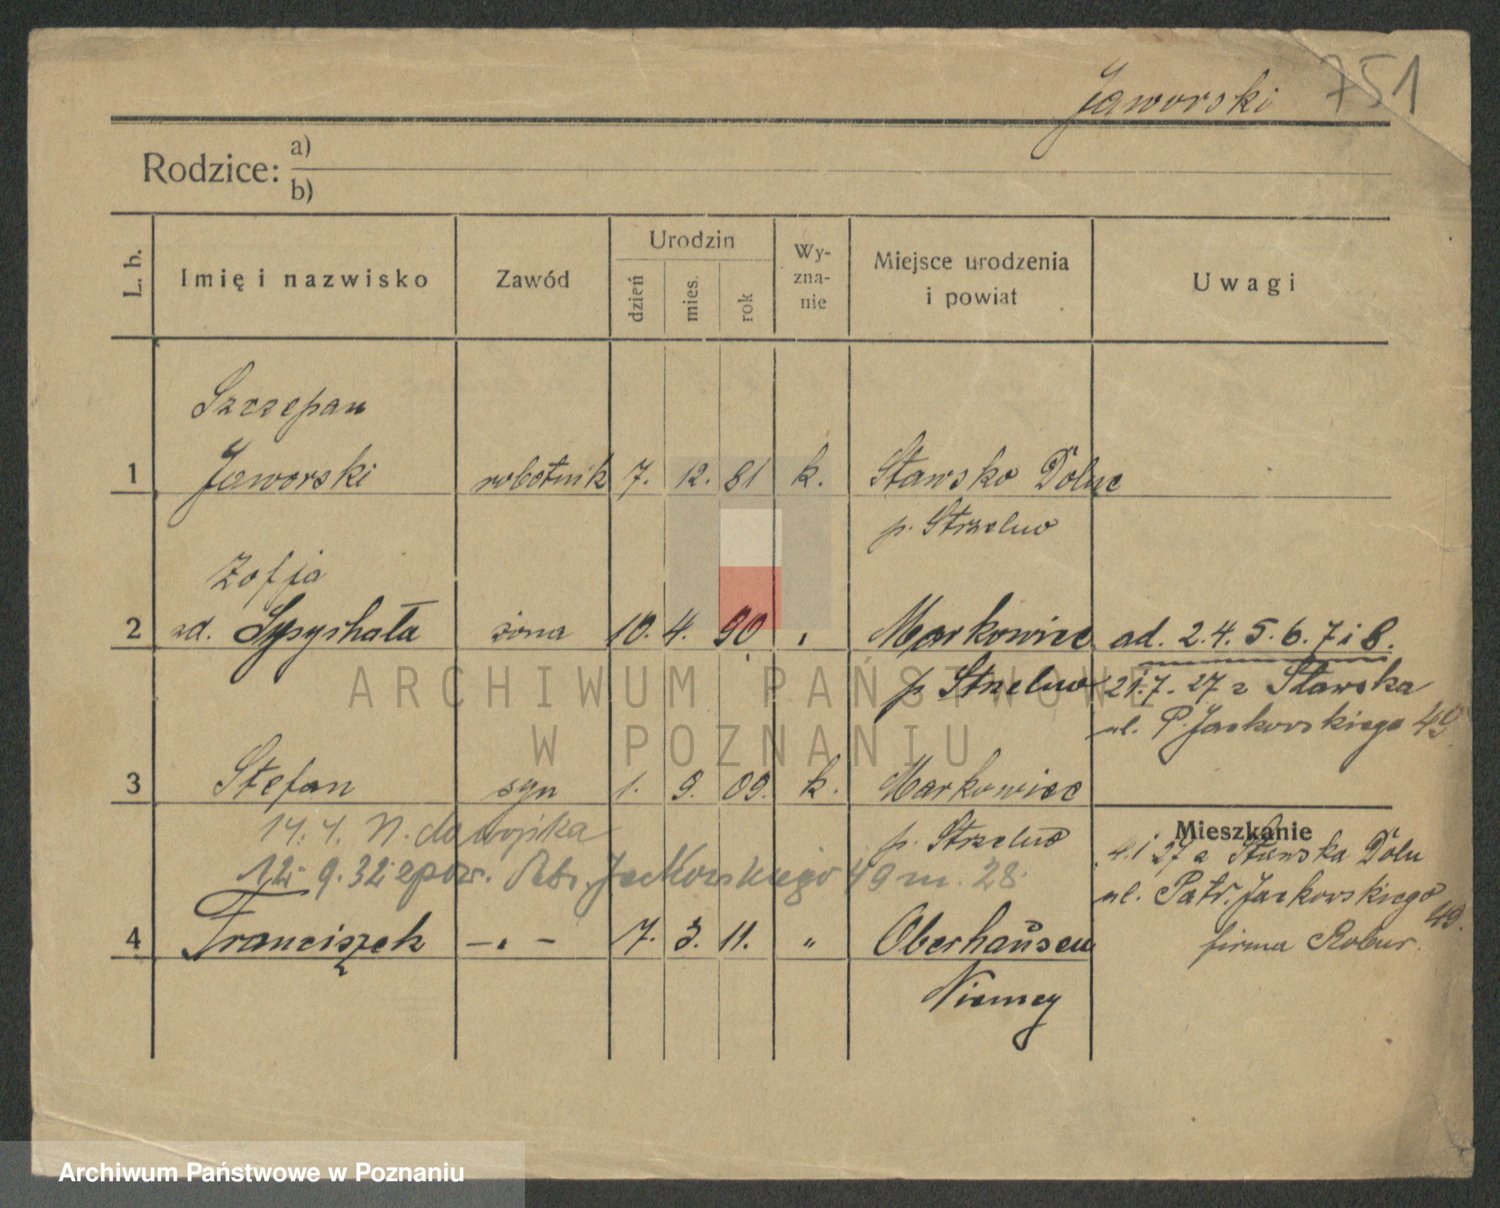 Jaworski 751
Rodzice: a)
b)
L. b.
Imię i nazwisko
Zawód
Urodzin
dzień
mies.
rok
Wy-
zna-
nie
Miejsce urodzenia
i powiat
Uwagi
Szczepan
1 Jaworski robotnik 7. 12. 81 k. Stawsko Dolne
p. Strzelno
Zofja
2 zd. żona 10. 4. 90 Markowice ad. 2. 4. 5. 6. 7 i 8.
p. Strzelno 21.7.27 z Stawska
ul. P. Jackowskiego 49
3 Stefan syn 1. 9. 09. k. Markowice
do wojska p. Strzelno
Mieszkanie
27 z Stawska Doln
12. 9. 32 Jackowskiego 49 m. 28
ul. Patr. Jackowskiego 49.
4 Franciszek – . – 7. 3. 11. " Oberhausen
firma Robur.
Niemcy
ARCHIWUM PAŃSTWOWE
W POZNANIU
Archiwum Państwowe w Poznaniu